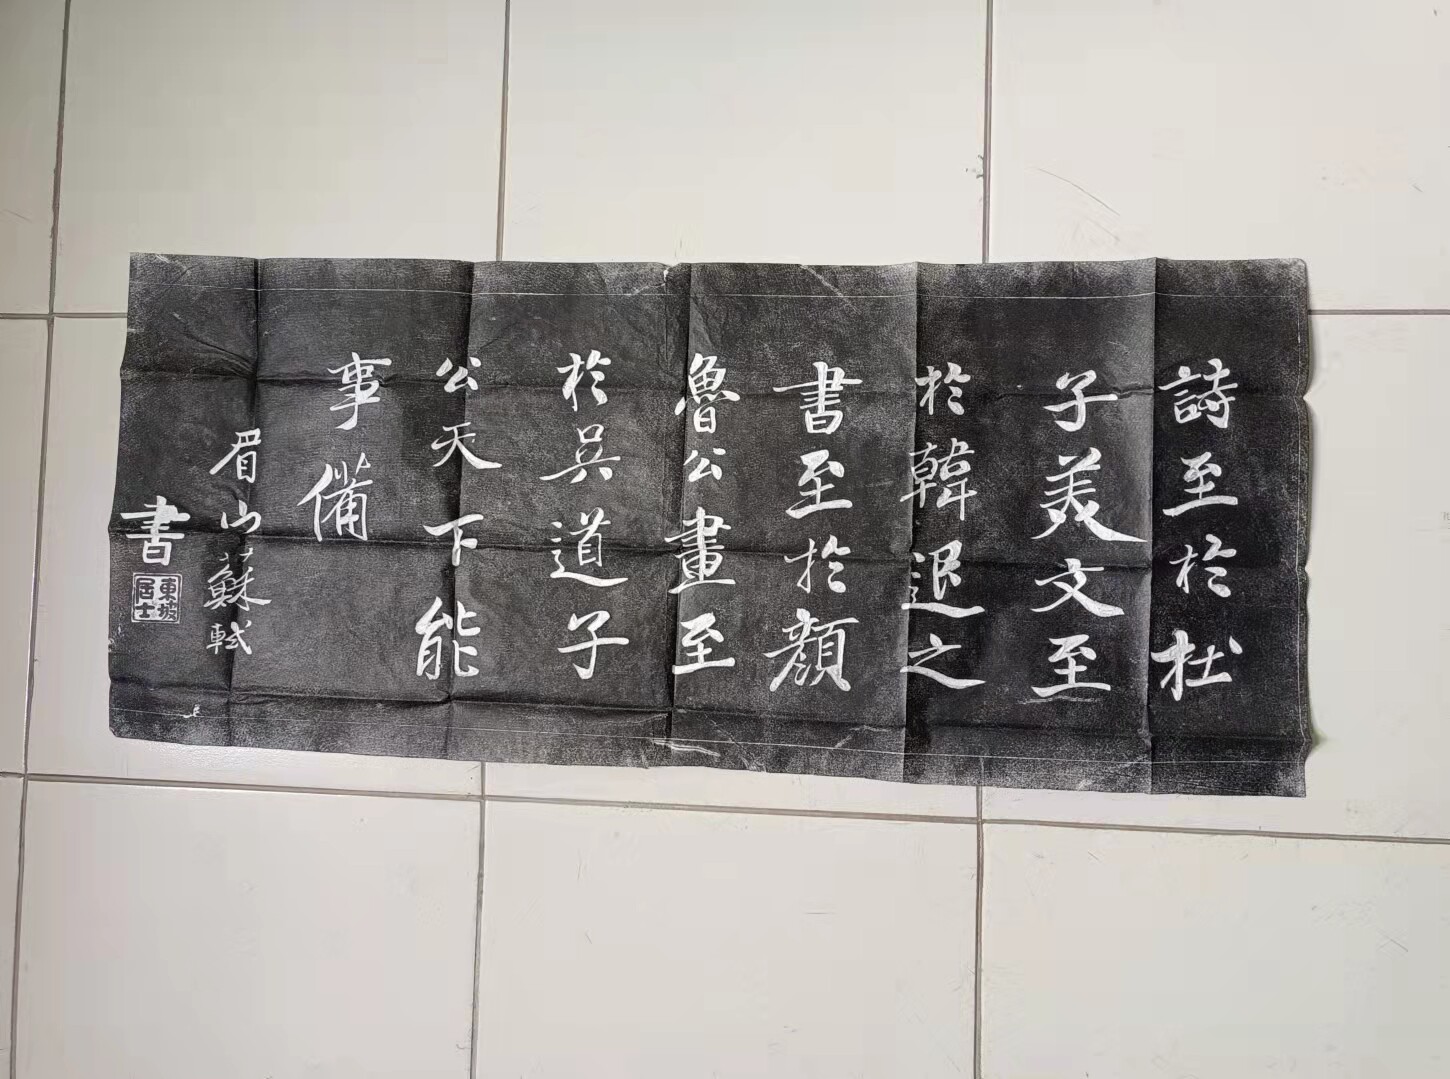 詩至於杜
子美文至
於韓退之
書至於顔
魯公畫至
於吴道子
公天下能
事備
眉山蘇軾
書
東坡居士